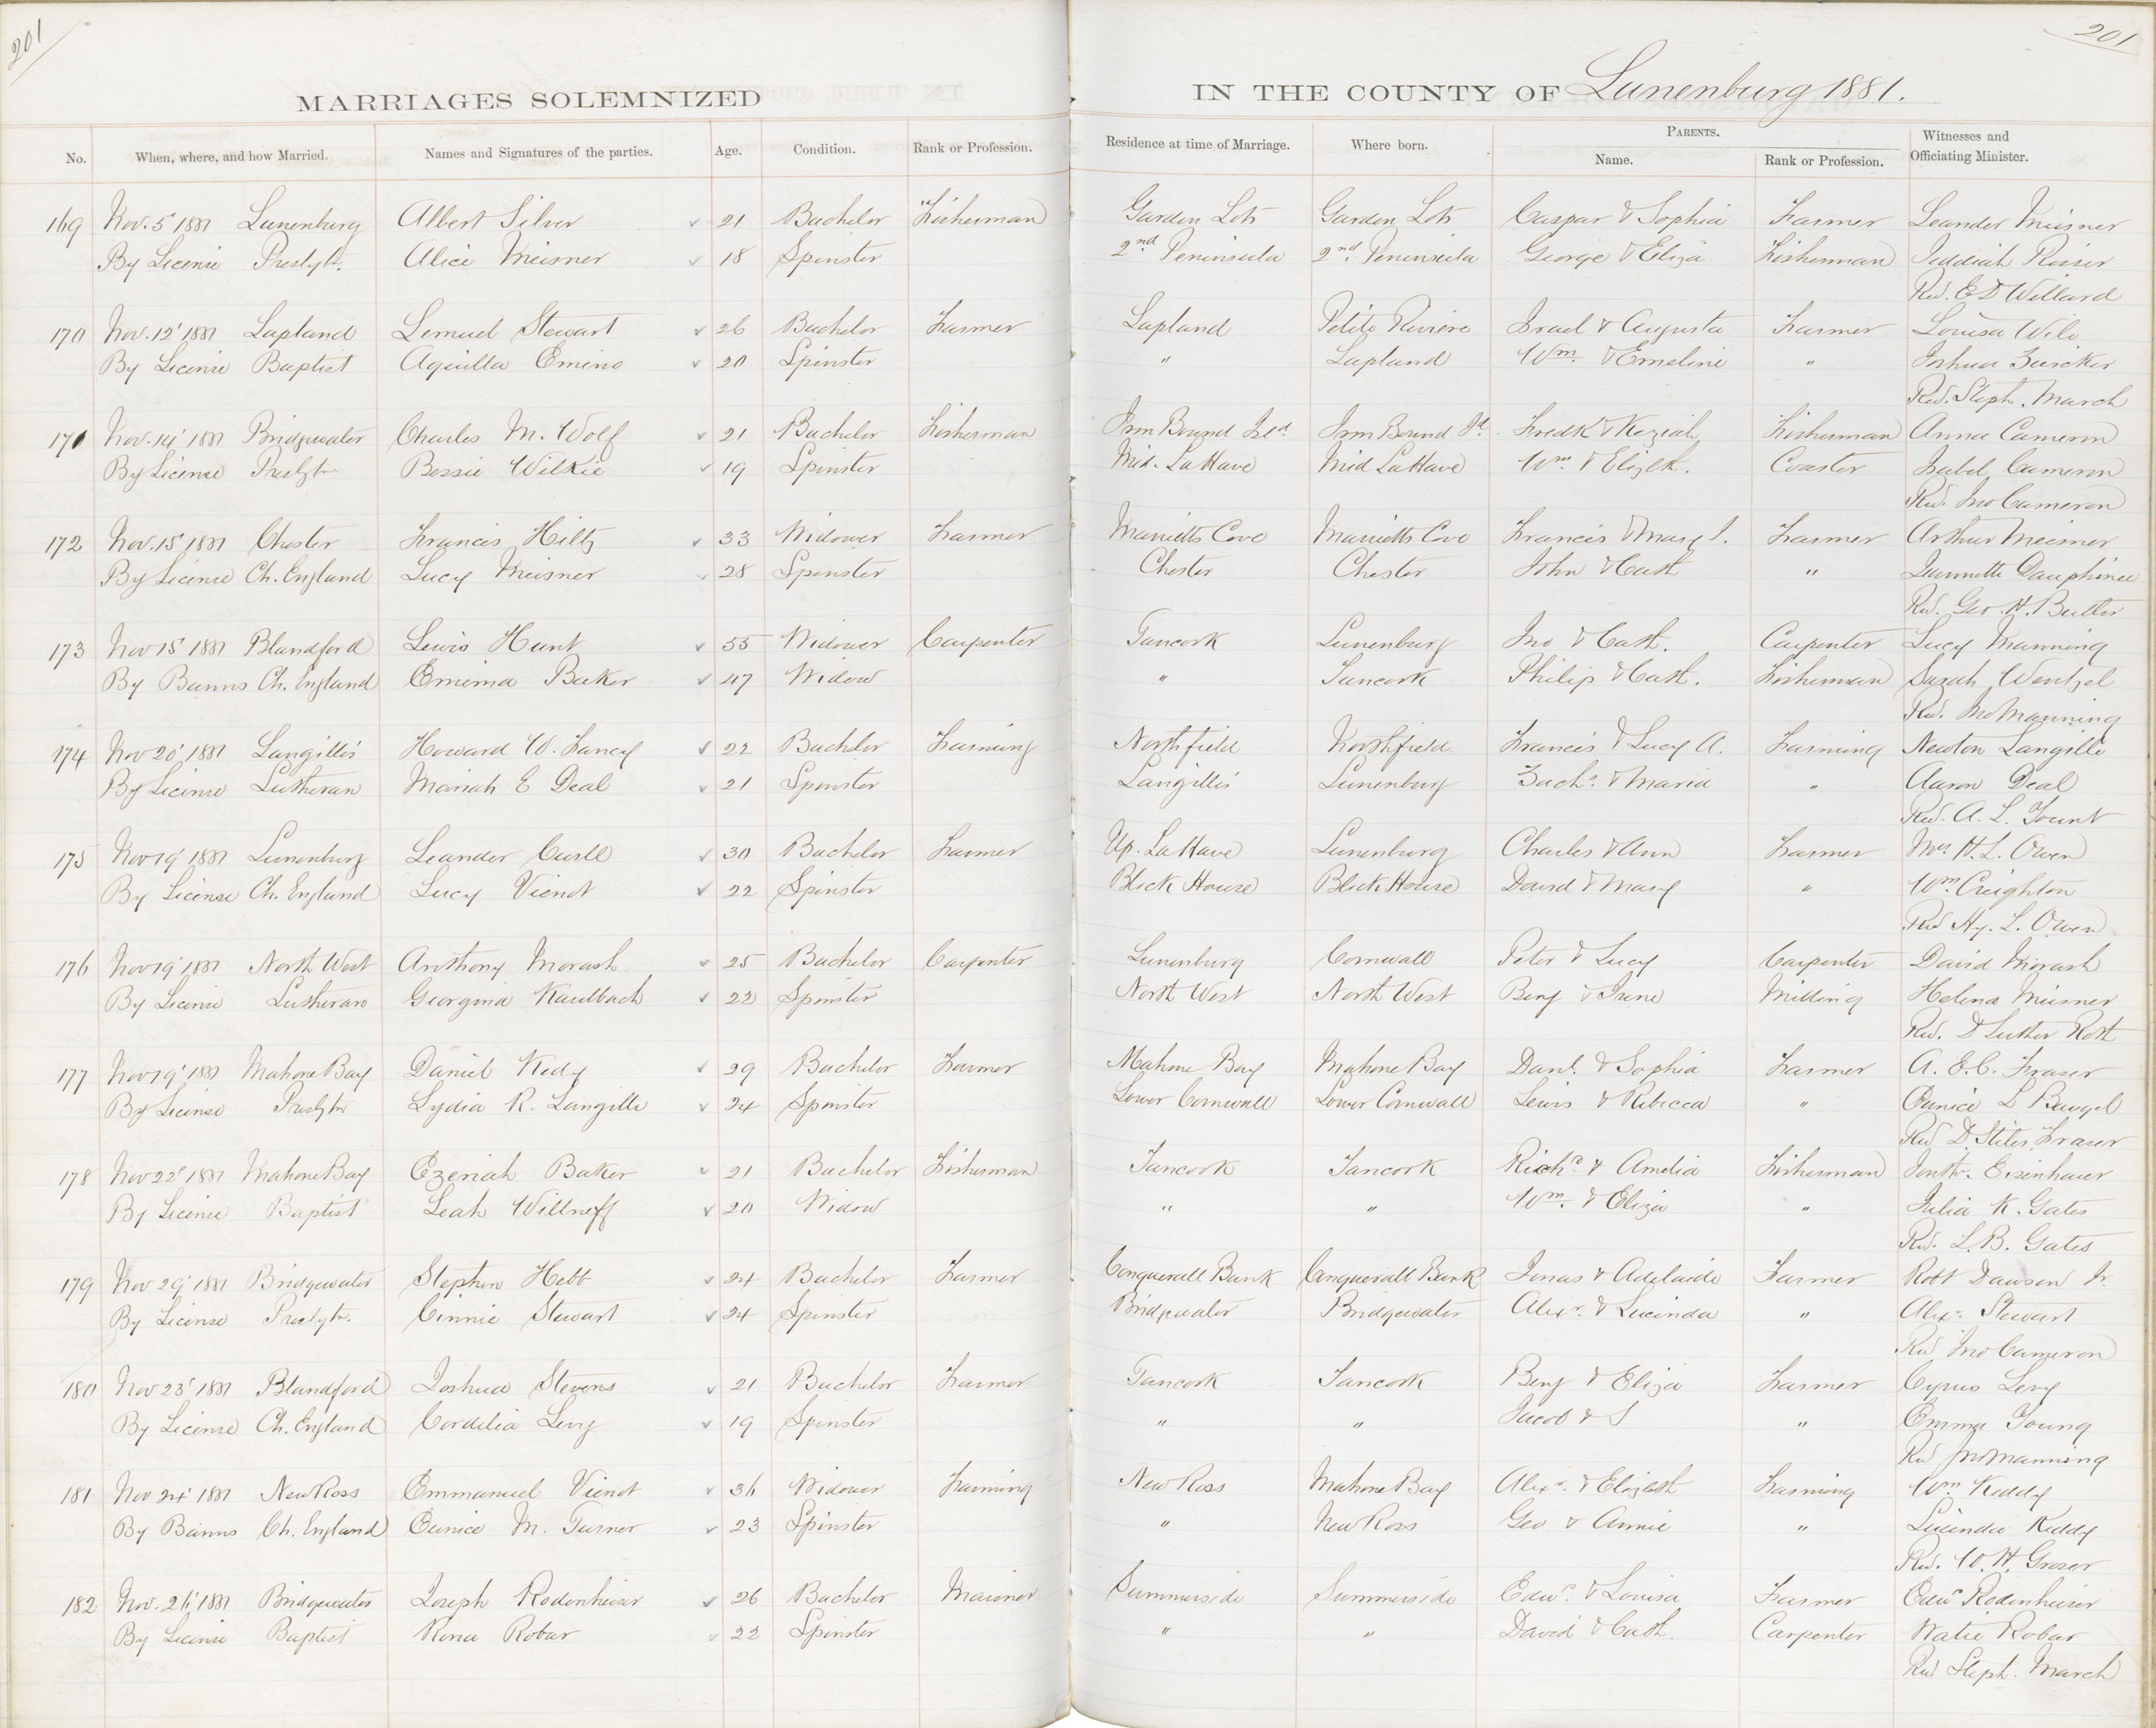 201
201
MARRIAGES SOLEMNIZED IN THE COUNTY OF Lunenburg 1881.
No. When, where, and how Married. Names and Signatures of the parties. Age. Condition. Rank or Profession. Residence at time of Marriage. Where born. PARENTS. Name. Rank or Profession. Witnesses and Officiating Minister.
169 Nov. 5' 1881 Lunenburg Albert Silver 21 Bachelor Fisherman Garden Lots Garden Lots Caspar & Sophia Farmer Leander Meisner
By License Presbytn. Alice Meisner 18 Spinster 2nd Peninsula 2nd. Peninsula George & Eliza Fisherman Jeddiah Risser
Rev. E D Millard
170 Nov. 12' 1881 Lapland Lemuel Stewart 26 Bachelor Farmer Lapland Petite Riviere Israel & Augusta Farmer Louisa Wile
By License Baptist Aquilla Emino 20 Spinster " Lapland Wm. & Emeline " Joshua Zwicker
Rev. Steph. March
171 Nov. 14' 1881 Bridgewater Charles M. Wolf 21 Bachelor Fisherman Iron Bound Isld. Iron Bound Id. Fredk & Keziah Fisherman Anna Cameron
By License Presbytn Bessie Wilkie 19 Spinster Mid. LaHave Mid LaHave Wm. & Elizth. Coaster Isabel Cameron
Rev. Jno Cameron
172 Nov. 15' 1881 Chester Francis Hiltz 33 Widower Farmer Marriotts Cove Marriotts Cove Francis & Mary S. Farmer Arthur Meisner
By License Ch. England Lucy Meisner 28 Spinster Chester Chester John & Cath " Jeannette Dauphinee
Rev. Geo. H. Butler
173 Nov 15' 1881 Blandford Lewis Hunt 55 Widower Carpenter Tancook Lunenburg Jno & Cath. Carpenter Lucy Manning
By Banns Ch. England Emima Baker 47 Widow " Tancook Philip & Cath. Fisherman Sarah Wentzel
Rev. Jno Manning
174 Nov 20' 1881 Langille's Howard W. Fancy 22 Bachelor Farming Northfield Northfield Francis & Lucy A. Farming Newton Langille
By License Lutheran Mariah E Deal 21 Spinster Langille's Lunenburg Zachs. & Maria " Aaron Deal
Rev. A. L. Yount
175 Nov 19' 1881 Lunenburg Leander Curll 30 Bachelor Farmer Up. LaHave Lunenburg Charles & Ann Farmer Mrs. H. L. Owen
By License Ch. England Lucy Vienot 22 Spinster Block House Block House David & Mary " Wm. Creighton
Rev Hy. L. Owen
176 Nov 19' 1881 North West Anthony Morash 25 Bachelor Carpenter Lunenburg Cornwall Peter & Lucy Carpenter David Morash
By License Lutheran Georgina Kaulbach 22 Spinster North West North West Benj & Irene Milling Helena Meisner
Rev. D Luther Roth
177 Nov 19' 1881 Mahone Bay Daniel Kedy 29 Bachelor Farmer Mahone Bay Mahone Bay Danl. & Sophia Farmer A. E. C. Fraser
By License Presbytn Lydia R. Langille 24 Spinster Lower Cornwall Lower Cornwall Lewis & Rebecca " Eunice L
Rev D Stiles Fraser
178 Nov 22' 1881 Mahone Bay Ezeriah Baker 21 Bachelor Fisherman Tancook Tancook Richd. & Amelia Fisherman Jonthn. Eisenhauer
By License Baptist Leah Willneff 20 Widow " " Wm. & Eliza " Julia K. Gates
Rev. L. B. Gates
179 Nov 29' 1881 Bridgewater Stephen Hebb 24 Bachelor Farmer Conquerall Bank Conquerall Bank Jonas & Adelaide Farmer Robt Dawson Jr.
By License Presbytn. Cinnie Stewart 24 Spinster Bridgewater Bridgewater Alexr. & Lucinda " Alexr. Stewart
Rev Jno Cameron
180 Nov 23' 1881 Blandford Joshua Stevens 21 Bachelor Farmer Tancook Tancook Benj & Eliza Farmer Cyrus Levy
By License Ch. England Cordelia Levy 19 Spinster " " Jacob & S " Emma Young
Rev Jno Manning
181 Nov 24' 1881 New Ross Emmanuel Vienot 36 Widower Farming New Ross Mahone Bay Alexr. & Elizabth Farming Wm Keddy
By Banns Ch. England Eunice M. Turner 23 Spinster " New Ross Geo & Annie " Lucinda Keddy
Rev. W. H. Groser
182 Nov. 26' 1881 Bridgewater Joseph Rodenheiser 26 Bachelor Mariner Summerside Summerside Edwd. & Louisa Farmer Edwd Rodenheiser
By License Baptist Rona Robar 22 Spinster " " David & Cath. Carpenter Katie Robar
Rev Steph. March